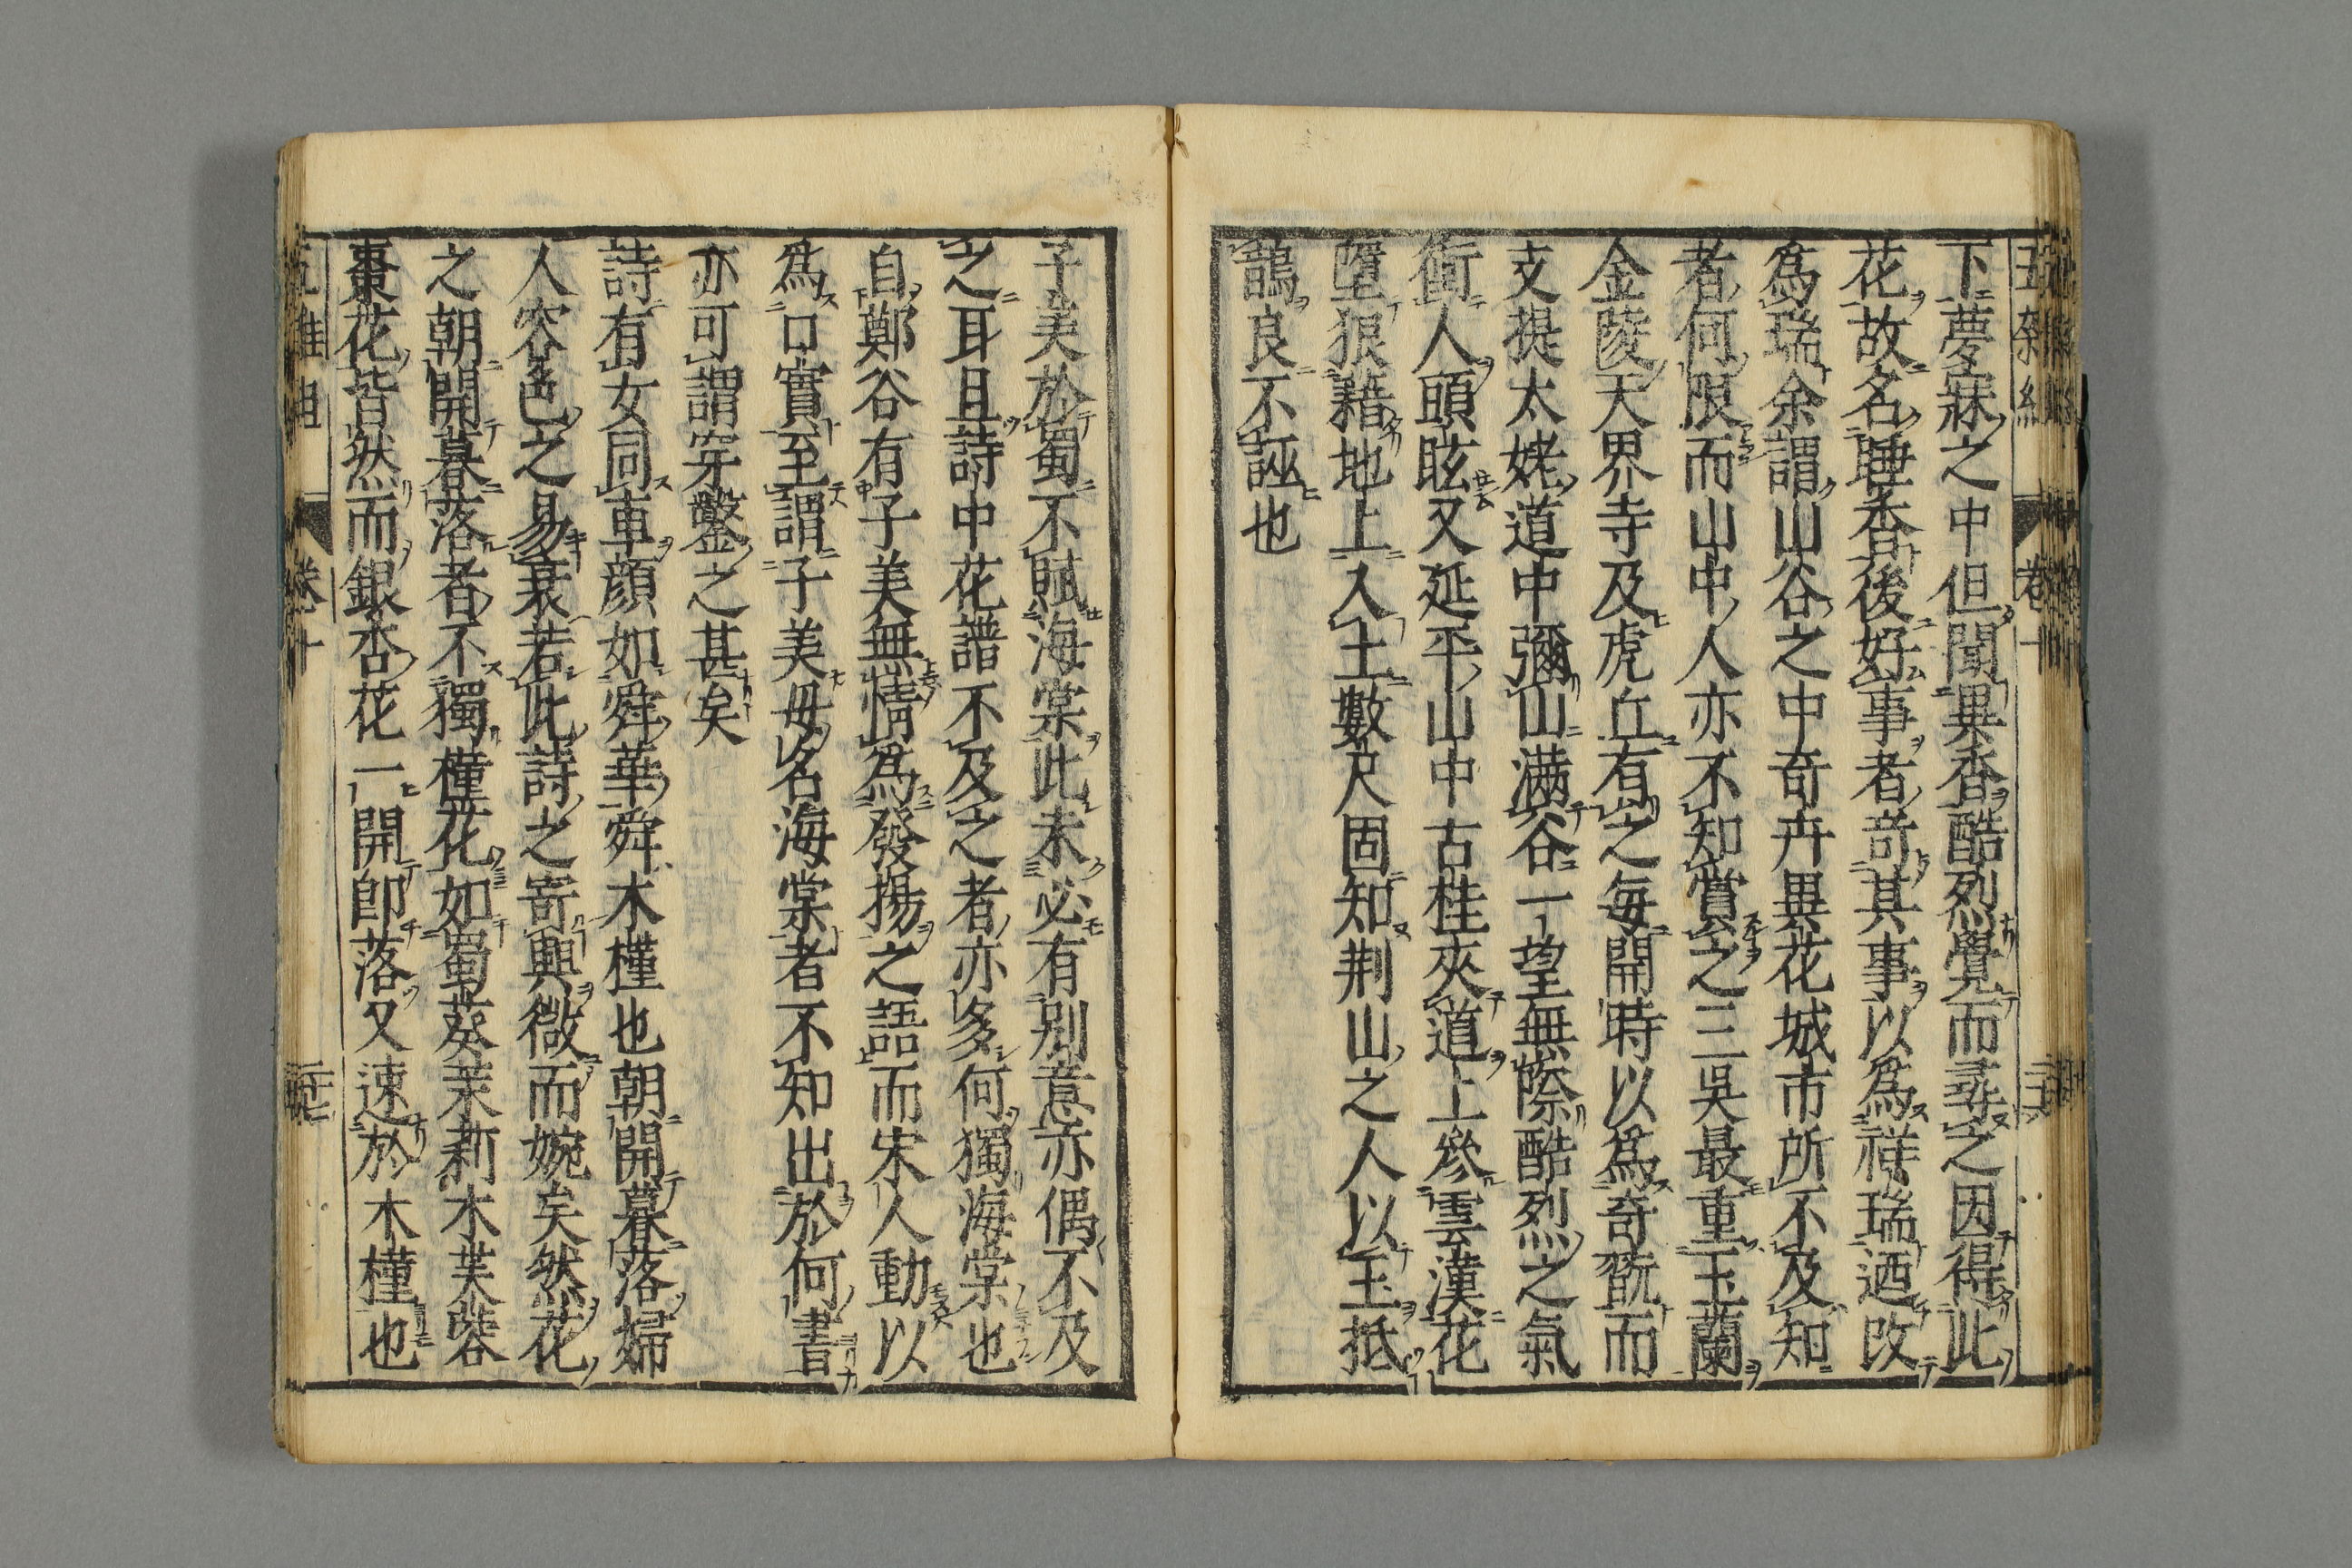 下夢寐之中但聞異香酷烈覺而尋之因得此
花故名睡香後好事者奇其事以為祥瑞迺改
為瑞余謂山谷之中奇卉異花城市所不及知
者何限而山中人亦不知賞之三吳最重玉蘭
金陵天界寺及虎丘有之每開時以為奇翫而
支提太姥道中彌山滿谷一望無際酷烈之氣
衝人頭眩又延平山中古桂夾道上參雲漢花
墮狼藉地上入土數尺固知荆山之人以玉抵
鵲良不誣也
子美於蜀不賦海棠此未必有别意亦偶不及
之耳且詩中花譜不及之者亦多何獨海棠也
自鄭谷有子美無情為發揚之語而宋人動以
為口實至謂子美母名海棠者不知出於何書
亦可謂穿鑿之甚矣
詩有女同車顏如舜華舜木槿也朝開暮落婦
人容色之易衰若此詩之寄興微而婉矣然花
之朝開暮落者不獨槿花如蜀葵茉莉木芙蓉
棗花皆然而銀杏花一開即落又速於木槿也
卷十